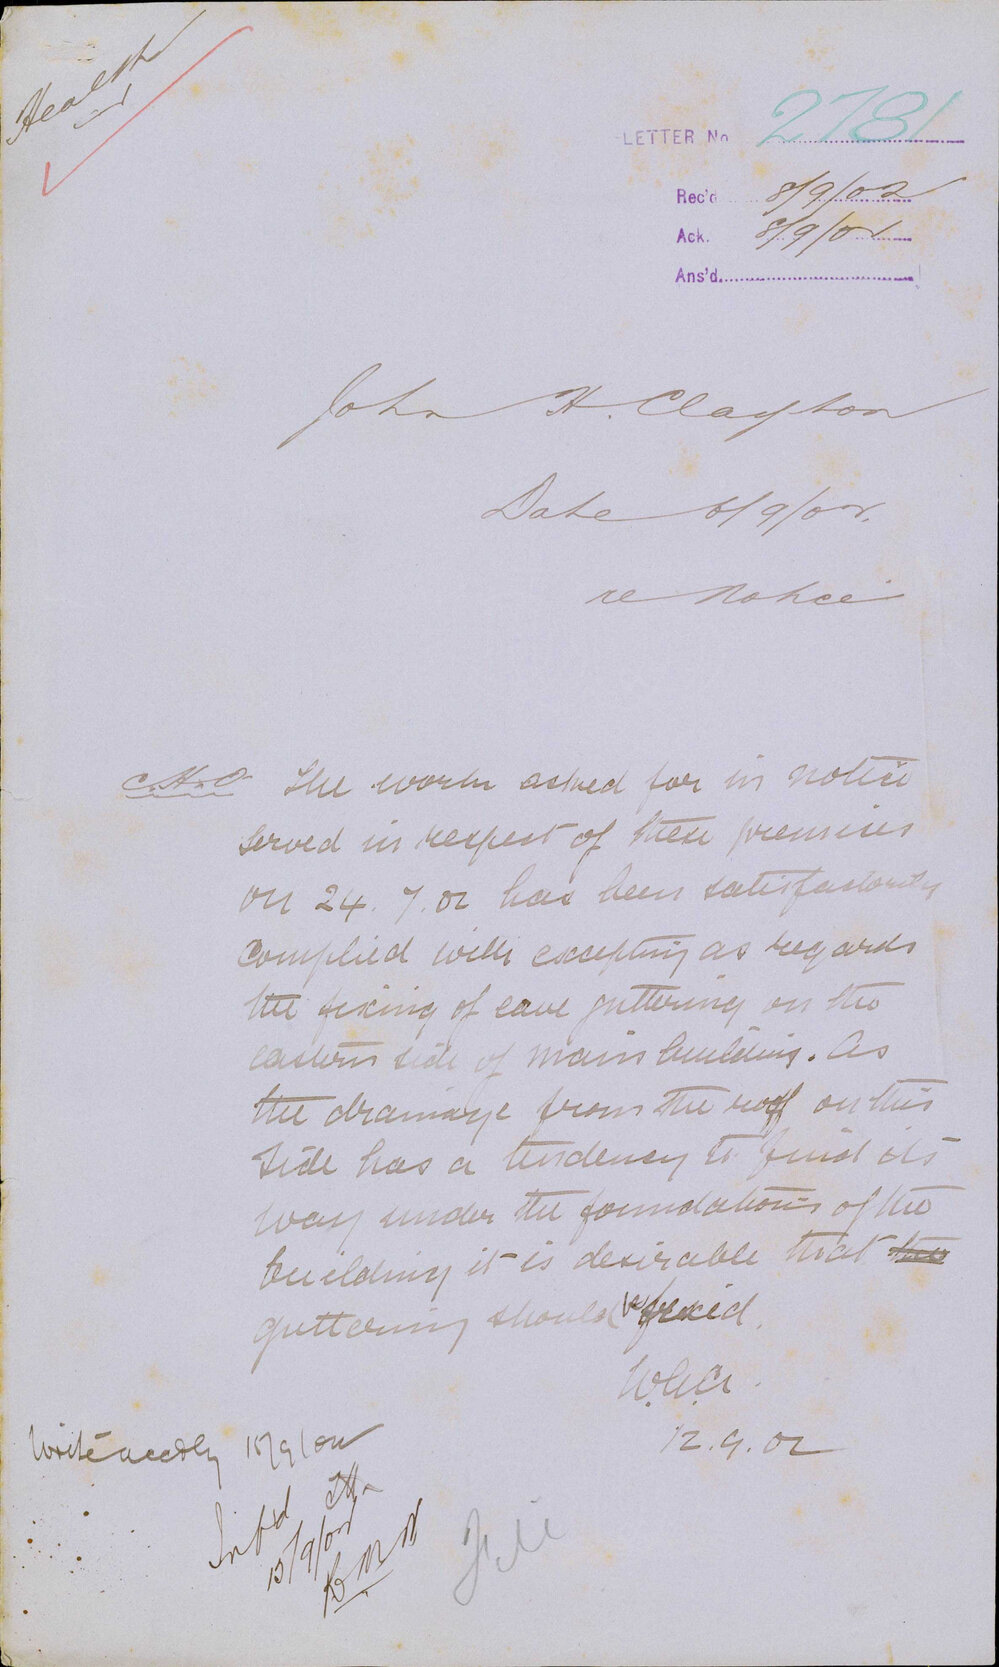 Health
LETTER No 2781
Rec'd 8/9/02
Ack. 8/9/02
Ans'd
John H. Clayton
Date 6/9/02.
re Notice
C.H.O. The work asked for in notice
served in respect of these premises
on 24.7.02 has been satisfactorily
complied with excepting as regards
the fixing of eave guttering on the
eastern side of main building. As
the drainage from the roof on this
side has a tendency to find its
way under the foundations of the
building it is desirable that the
guttering should be fixed.
12.9.02
Write accdly 15/9/02
15/9/02
File